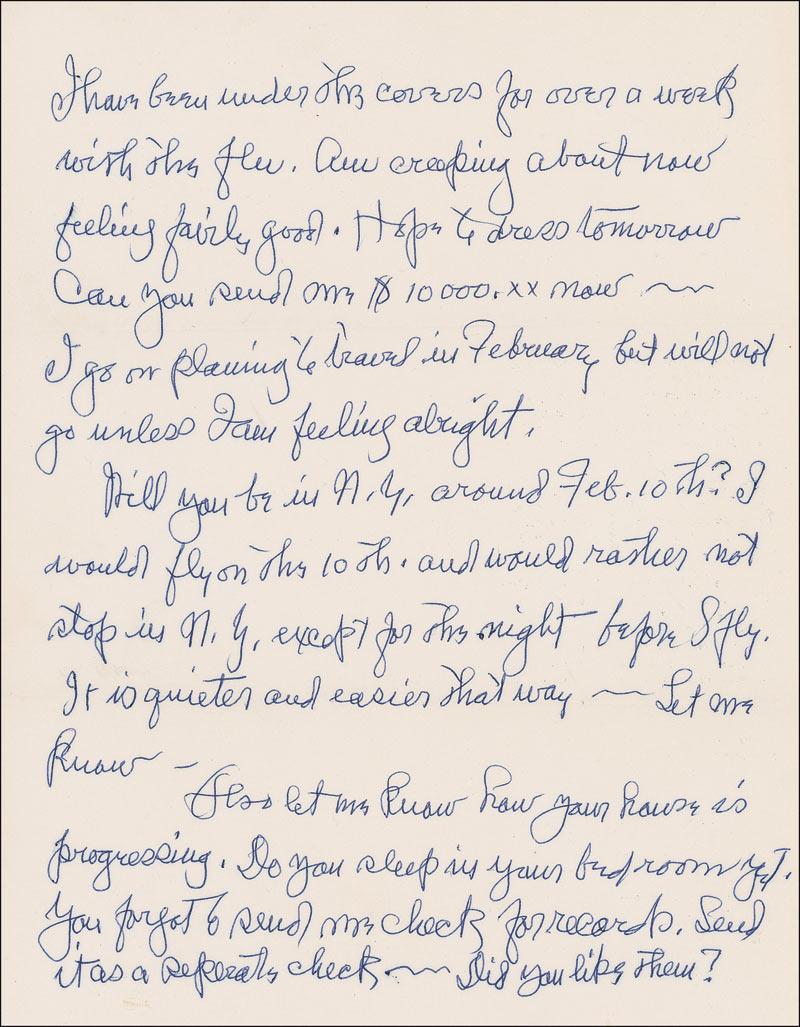 I have been under the covers for over a week
with the flu. Am creeping about now
feeling fairly good. Hope to dress tomorrow
Can you send me $ 10000.xx now ~
I go on planing to travel in February but will not
go unless I am feeling alright.
Will you be in N.Y. around Feb. 10 th? I
would fly on the 10 th. and would rather not
stop in N.Y. except for the night before I fly.
It is quieter and easier that way ~ Let me
know –
Also let me know how your house is
progressing. Do you sleep in your bedroom yet.
You forgot to send me check for records. Send
it as a seperate check ~ Did you like them?